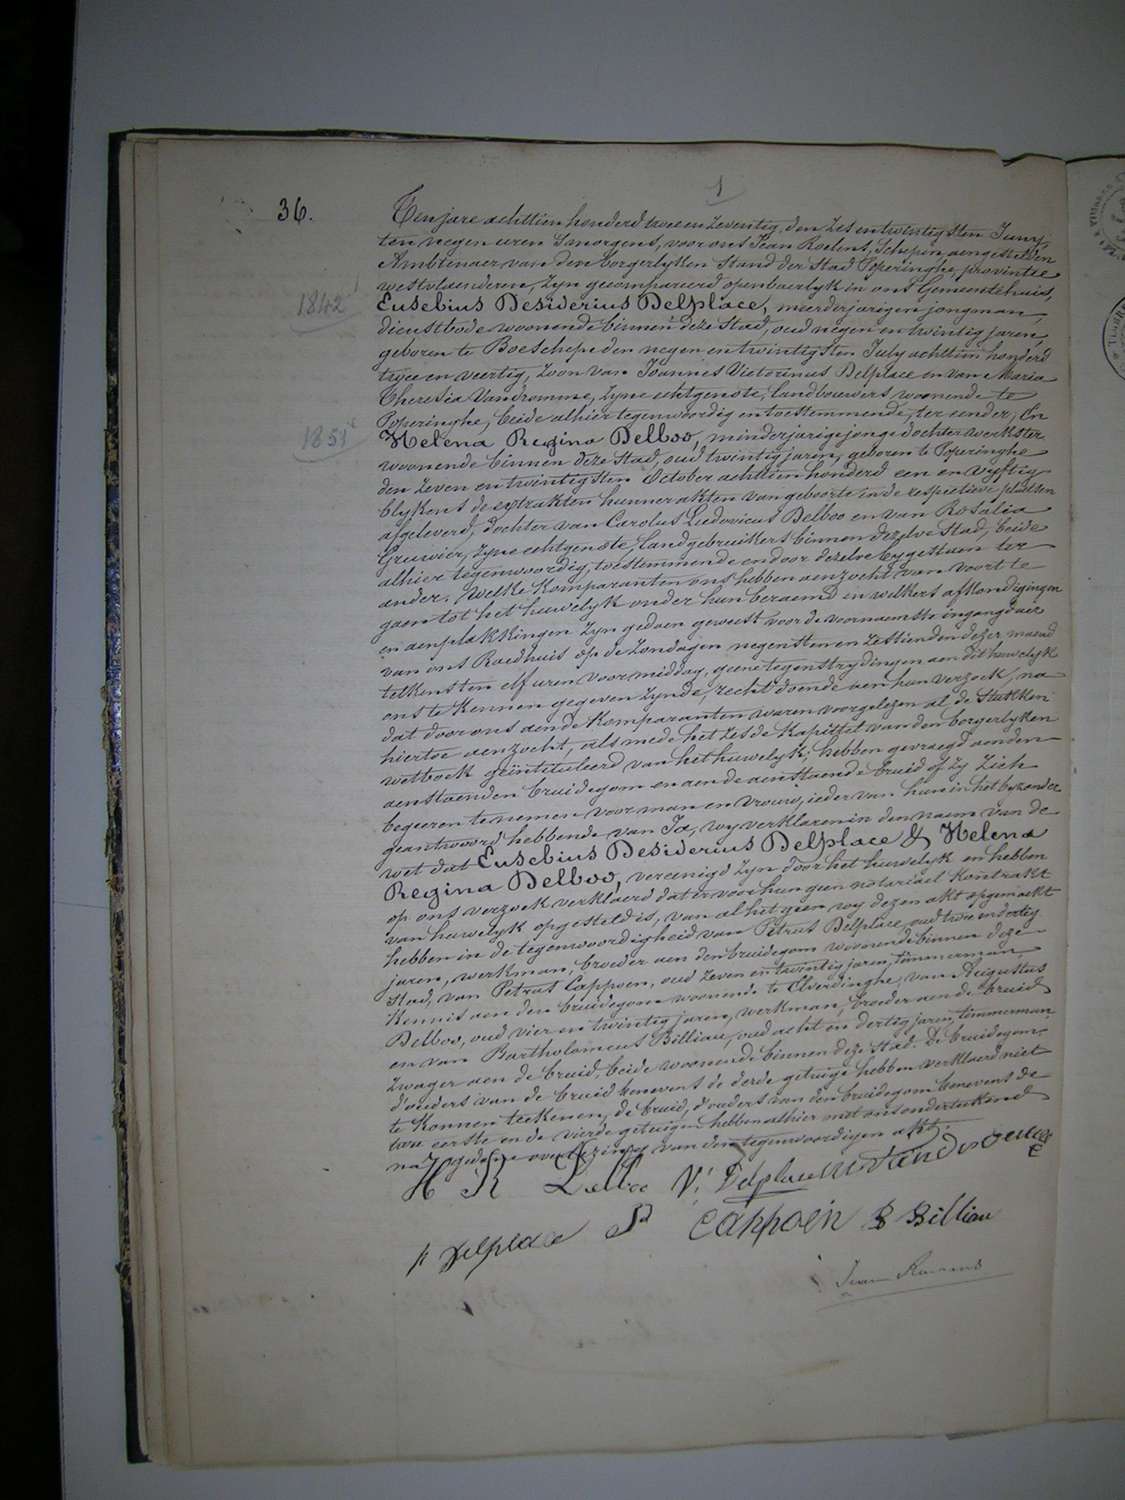 1
36.
Ten jare achttien honderd twee en zeventig, den zes en twintigsten Juny,
ten negen uren 'smorgens, voor ons Jean Roelens, Schepen, aengestelden
Ambtenaer van den borgerlyken Stand der Stad Poperinghe, provintie
westvlaenderen, zyn gecompareerd openbaerlyk in ons Gemeentehuis,
1842
Eusebius Desiderius Delplace, meerderjarigen jongman,
dienstbode woonende binnen deze Stad, oud negen en twintig jaren,
geboren te Boeschepe den negen en twintigsten July achttien honderd
twee en veertig, zoon van Joannes Victorinus Delplace en van Maria
Theresia Vandromme, zyne echtgenote, landbouwers woonende te
Poperinghe, beide alhier tegenwoordig en toestemmende, ter eender; En
1851
Helena Regina Delboo, minderjarige jonge dochter werkster
woonende binnen deze Stad, oud twintig jaren, geboren te Poperinghe
den zeven en twintigsten October achttien honderd een en vyftig
blykens de extrakten hunner akten van geboorte in de respectieve plaetsen
afgeleverd, dochter van Carolus Ludovicus Delboo en van Rosalia
Gruwier, zyne echtgenote, landgebruikers binnen dezelve Stad, beide
alhier tegenwoordig, toestemmende en door dezelve bygestaen ter
ander. Welke Komparanten ons hebben aenzocht van voort te
gaen tot het huwelyk onder hun beraemd en welkers afkondigingen
en aenplakkingen zyn gedaen geweest voor de voornaemste ingangdeur
van ons Raedhuis op de Zondagen negensten en zestienden dezer maend
telkens ten elf uren voormiddag, geene tegenstrydingen aen dit huwelyk
ons te kennen gegeven zynde, recht doende aen hun verzoek, na
dat door ons aen de Komparanten waren voorgelezen al de Stukken
hiertoe aenzocht, als mede het zesde Kapittel van den borgerlyken
wetboek geïntituleerd van het huwelyk; hebben gevraegd aenden
aenstaenden bruidegom en aen de aenstaende bruid of zy zich
begeeren te nemen voor man en vrouw, ieder van hun in het byzonder
geantwoord hebbende van Ja, wy verklaren in den naem van de
wet dat Eusebius Desiderius Delplace & Helena
Regina Delboo, vereenigd zyn door het huwelyk en hebben
op ons verzoek verklaerd dat er voor hun geen notariael Kontrakt
van huwelyk opgesteld is, van al het geen wy dezen akt opgemaekt
hebben in de tegenwoordigheid van Petrus Delplace, oud twee en dertig
jaren, werkman, broeder aen den bruidegom woonende binnen deze
Stad, van Petrus Cappoen, oud zeven en twintig jaren, timmerman,
Kennis aen den bruidegom woonende te Elverdinghe, van Augustus
Delboo, oud vier en twintig jaren, werkman, broeder aen de bruid
en van Bartholomeus Billiau, oud acht en dertig jaren, timmerman
zwager aen de bruid, beide woonende binnen deze Stad. De bruidegom,
d'ouders van de bruid benevens de derde getuige hebben verklaerd niet
te konnen teekenen; de bruid, d'ouders van den bruidegom benevens de
twee eerste en de vierde getuigen hebben alhier met ons onderteekend
na gedane overlezing van den tegenwoordigen akt.
H R Delboo V. Delplace
p Delplace P Cappoen B Billiau
Jean Roelens